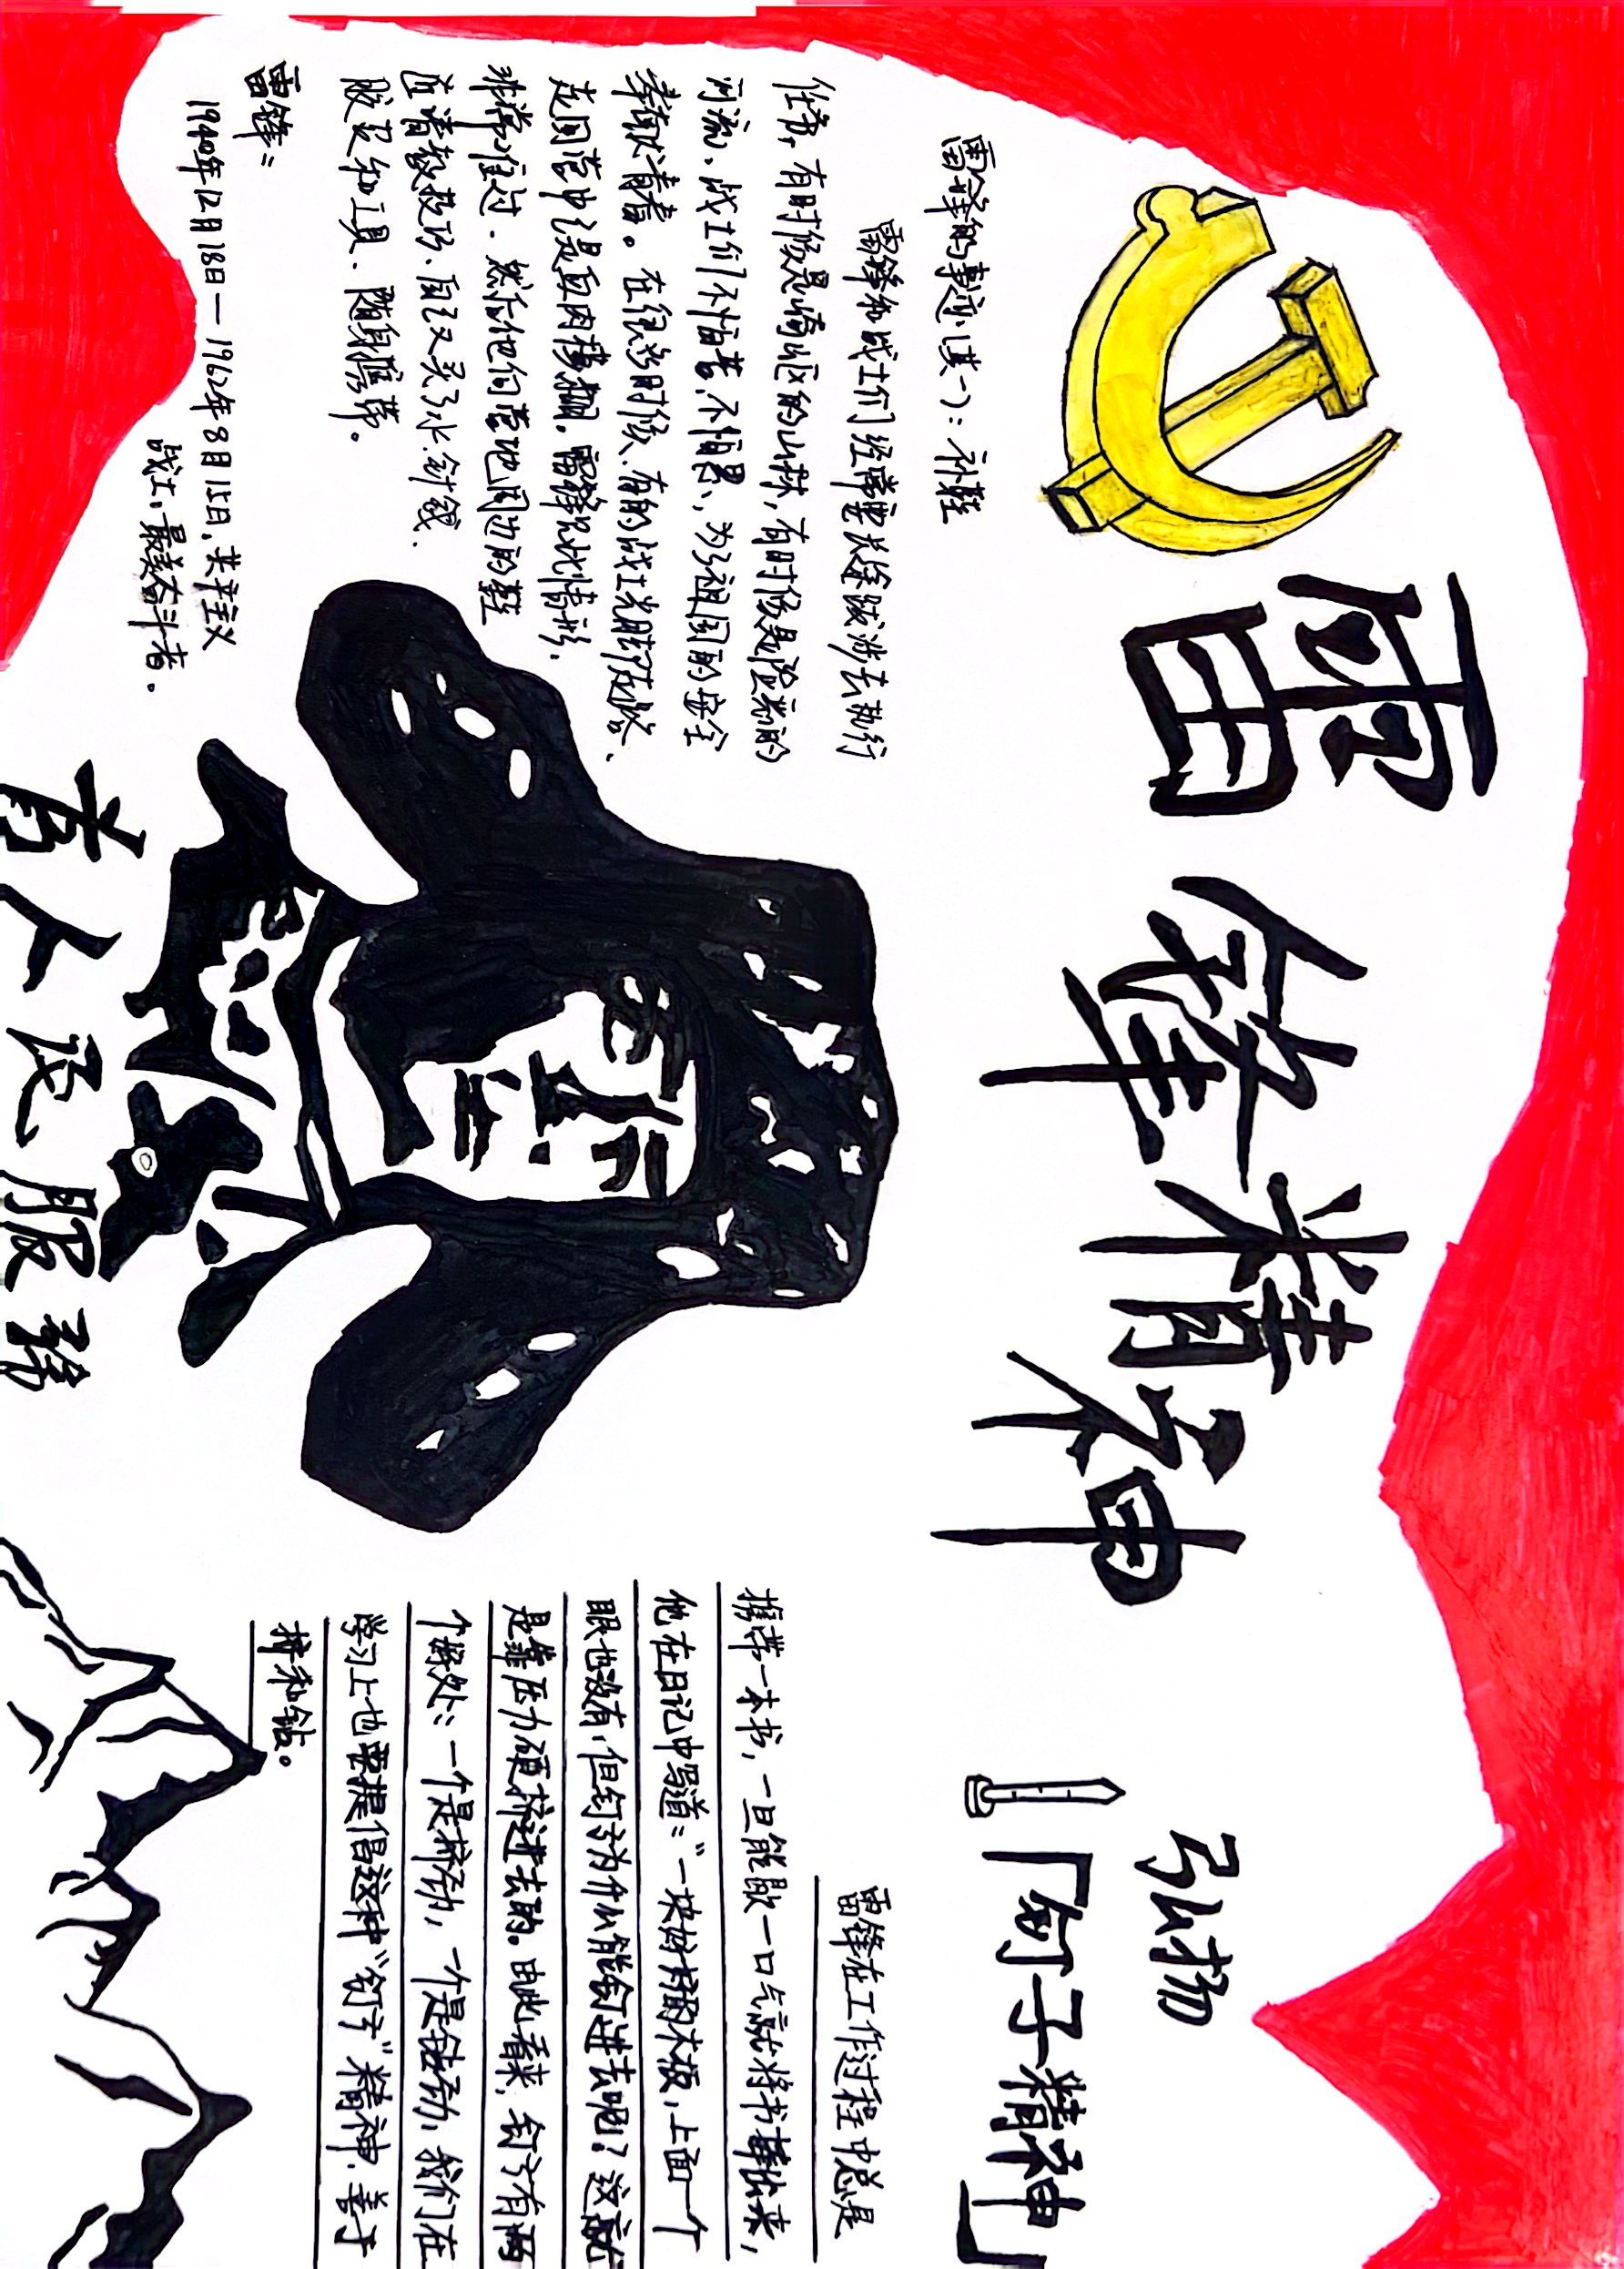 雷锋精神
雷锋的事迹(其一):补鞋
雷锋和战士们经常要长途跋涉去执行
任务,有时候是崎岖的山林,有时候是湍急的
河流,战士们不怕苦、不怕累、为了祖国的安全
奉献青春。在很多时候,有的战士光脚花路、
走回营中已是血肉模糊。雷锋见此情形,
非常难过,然后他向营地周边的鞋
匠请教技巧,自己又买了水、针线、
胶叉和工具,随身携带。
雷锋:
1940年12月18日—1962年8月15日,共产主义
战士,最美奋斗者。
为人民服务
弘扬
「钉子精神」
雷锋在工作过程中总是
携带一本书,一旦能歇一口气就将书拿出来,
他在日记中写道:“一块好好的木板,上面一个
眼也没有,但钉子为什么能钉进去呢?这就
是靠压力硬挤进去的。由此看来,钉子有两
个好处:一个是挤劲,一个是钻劲,我们在
学习上也要提倡这种“钉子”精神,善于
挤和钻。